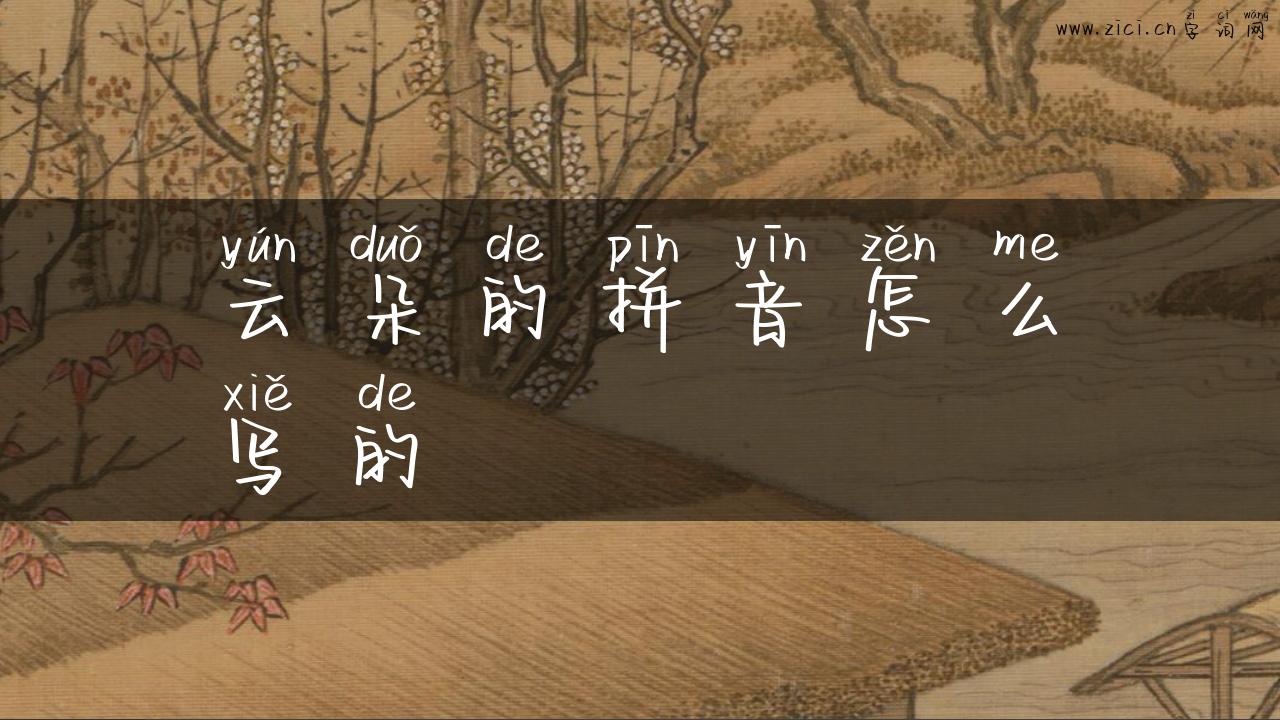 zì cí wǎng
www.zici.cn 字 词 网
yún duǒ de pīn yīn zěn me
云 朵 的 拼 音 怎 么
xiě de
写 的